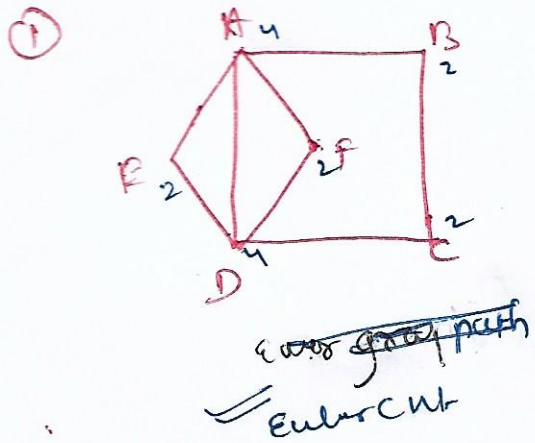 1
A 4
B
2
E 2
2 F
2
C
D 4
Euler path
Euler Ckt